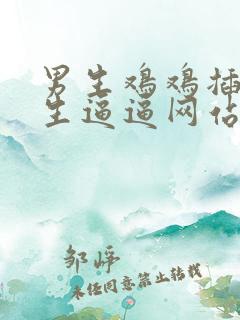 男生鸡鸡插
生逼逼网佔
邹崢
未经同意禁止转载